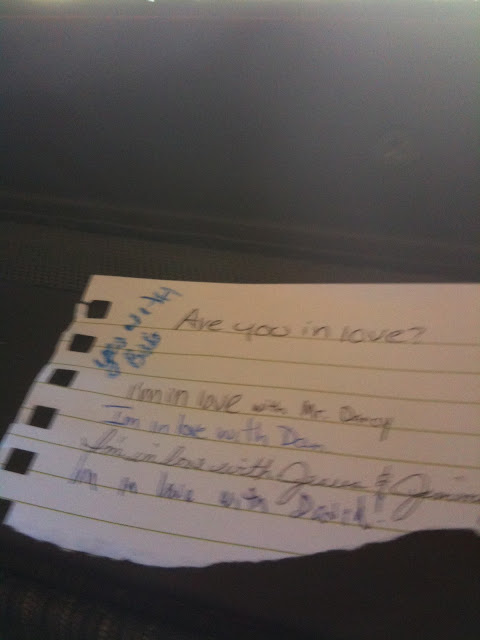 Are you in love?
I'm in love with Mr. Darcy
I'm in love with Dan
I'm in love with Jesus & Jimmy
Im in love with David!